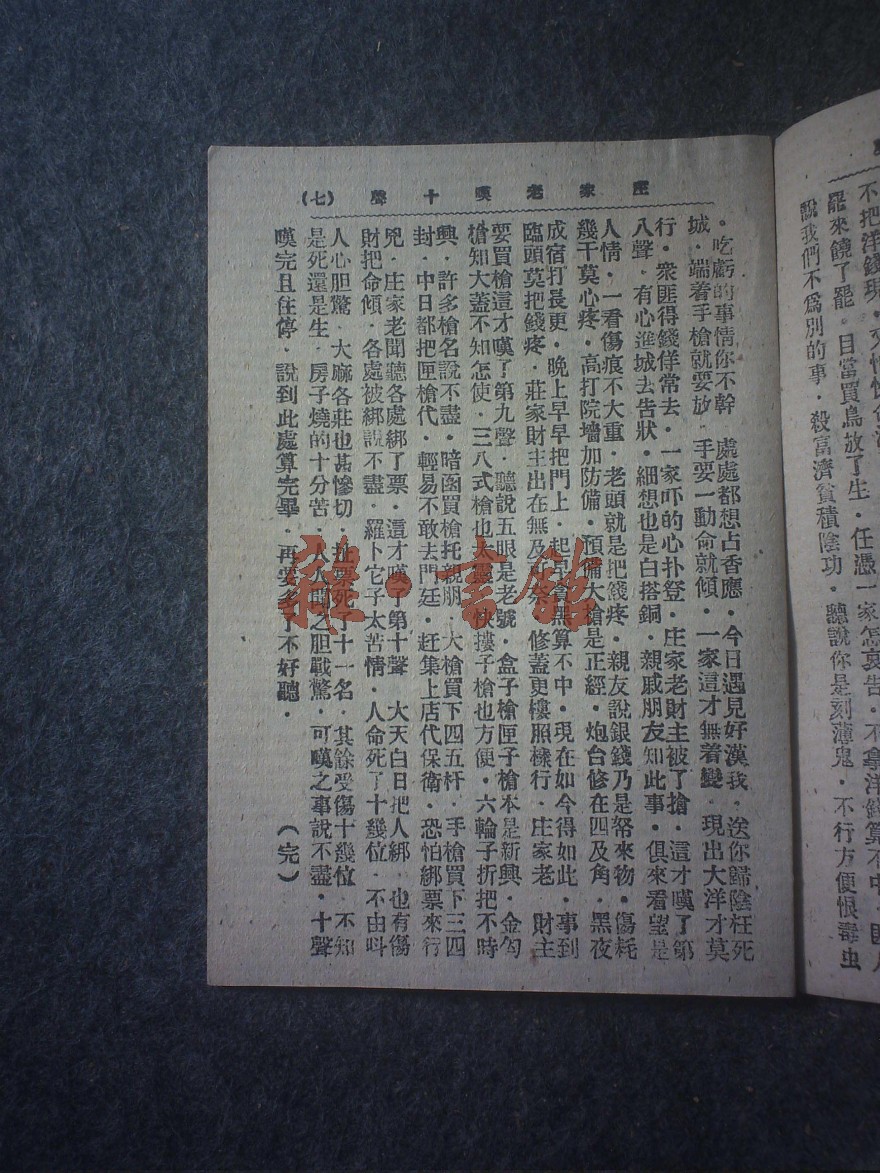 不把洋錢現
罷來饒了罷．目當買鳥放了生．任憑一家怎哀告．不拿洋錢算不中．匪人
說我們不爲別的事．殺富濟貧積陰功．聽說你是刻薄鬼．不行方便恨毒虫
庄家老嘆十聲
（七）
．吃虧的事情你不幹．處處都想占香應．今日遇見好漢我．送你歸陰枉死
城．端着手槍就要放．手要一動命就傾．一家這才無着變．現出大洋才莫
行．衆匪得錢佯常去．一家吓的心扑登．庄家老財主被了搶．這才嘆了第
八聲．有心進城去告狀．細想也是白搭銅．親戚朋友知此事．俱來看望是
人情．一看傷痕不大重．老頭就是把錢疼．親友說銀錢乃是帑來物．傷耗
幾干莫心疼．高打院墻加防備．預備大槍是正經．炮台修在四及角．黑夜
成宿打長更．晚上早早把門上．起早貪黑算不中．現在如今得如此．事到
臨頭莫把錢疼．莊家財主出在無及奈．修蓋更樓照樣行．庄家老．財主
要買槍這才嘆了第九聲．聽說五眼是老號．盒子槍匣子槍本是新興．金勾
槍知大蓋不知怎使．三八式槍也太靈．快摟子槍也方便．六輪子折把不時
興．許多槍名說不盡．暗函買槍托親朋．大槍買下四五杆．手槍買下三四
封．中日都把匣槍代．輕易不敢去門廷．赶集上店代保衛．恐怕綁票來行
兇．庄家老聞聽各處綁了票．這才嘆了第十聲．大天白日把人綁．也有傷
財把命傾．各處被綁說不盡．羅卜它子太苦情．人命死了十幾位．不由呌
人心胆驚．大麻各莊也甚慘切．扯票死了十一名．其餘受傷十幾位．不知
是死還是生．房子燒的十分苦．人人聞之胆戰驚．可嘆之事說不盡．十聲
嘆完且住停．說到此處算完畢．再要多了不好聽．
（完）
雜·書館